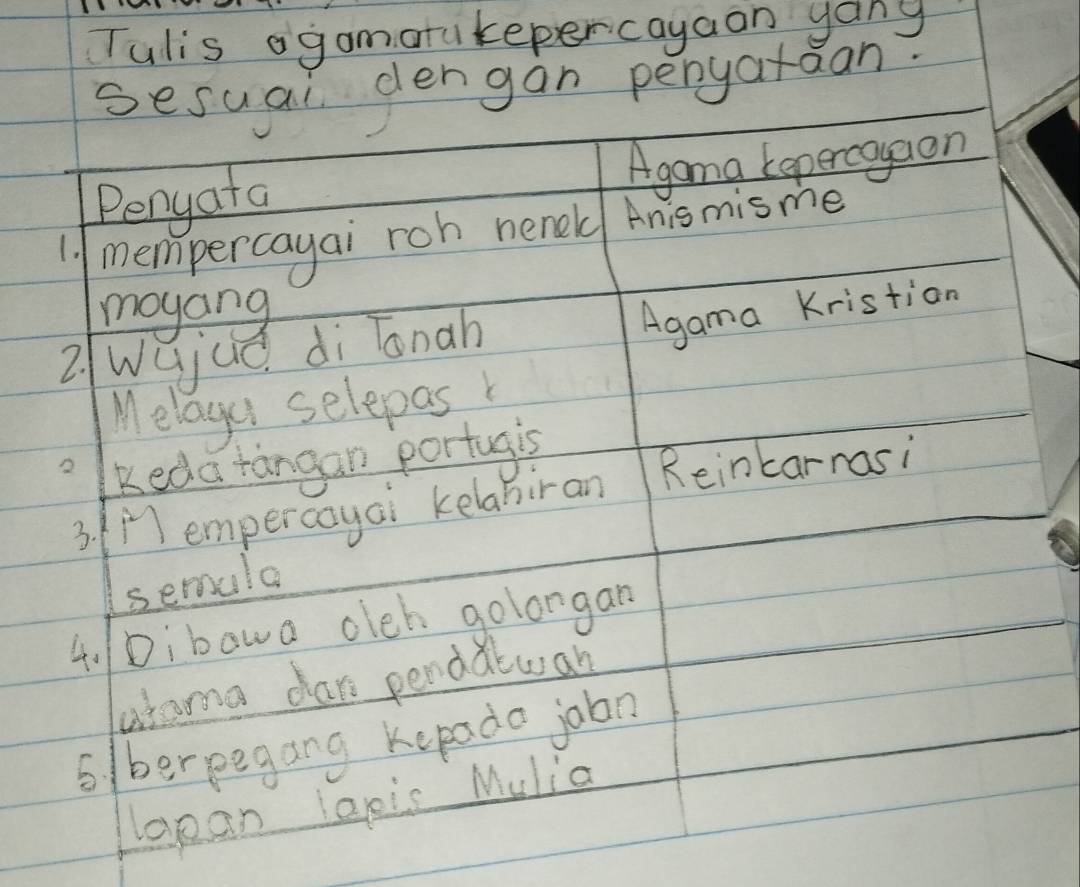 Tulis agama/kepercayaan yang
sesuai dengan penyataan.
Penyata
Agama kepercayaan
1. mempercayai roh nenek
Anismisme
moyang
2. Wujud di Tanah
Agama Kristian
Melayu selepas
kedatangan portugis
3. Mempercayai kelahiran
Reinkarnasi
semula
4. Dibawa oleh golongan
utama dan pendakwah
5. berpegang kepada jalan
lapan lapis Mulia